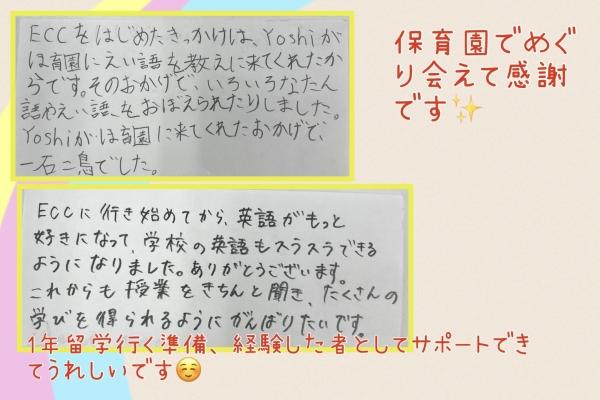 ECCをはじめたきっかけは、Yoshiが
ほ育園にえい語を教えに来てくれたか
らです。そのおかげで、いろいろなたん
語やえい語、をおぼえられたりしました。
Yoshiがほ育園に来てくれたおかげで、
一石二鳥でした。
保育園でめぐ
り会えて感謝
です✨
ECCに行き始めてから、英語がもっと
好きになって、学校の英語もスラスラできる
ようになりました。ありがとうございます。
これからも授業をきちんと聞き、たくさんの
学びを得られるようにがんばりたいです。
1年留学行く準備、経験した者としてサポートでき
てうれしいです☺️